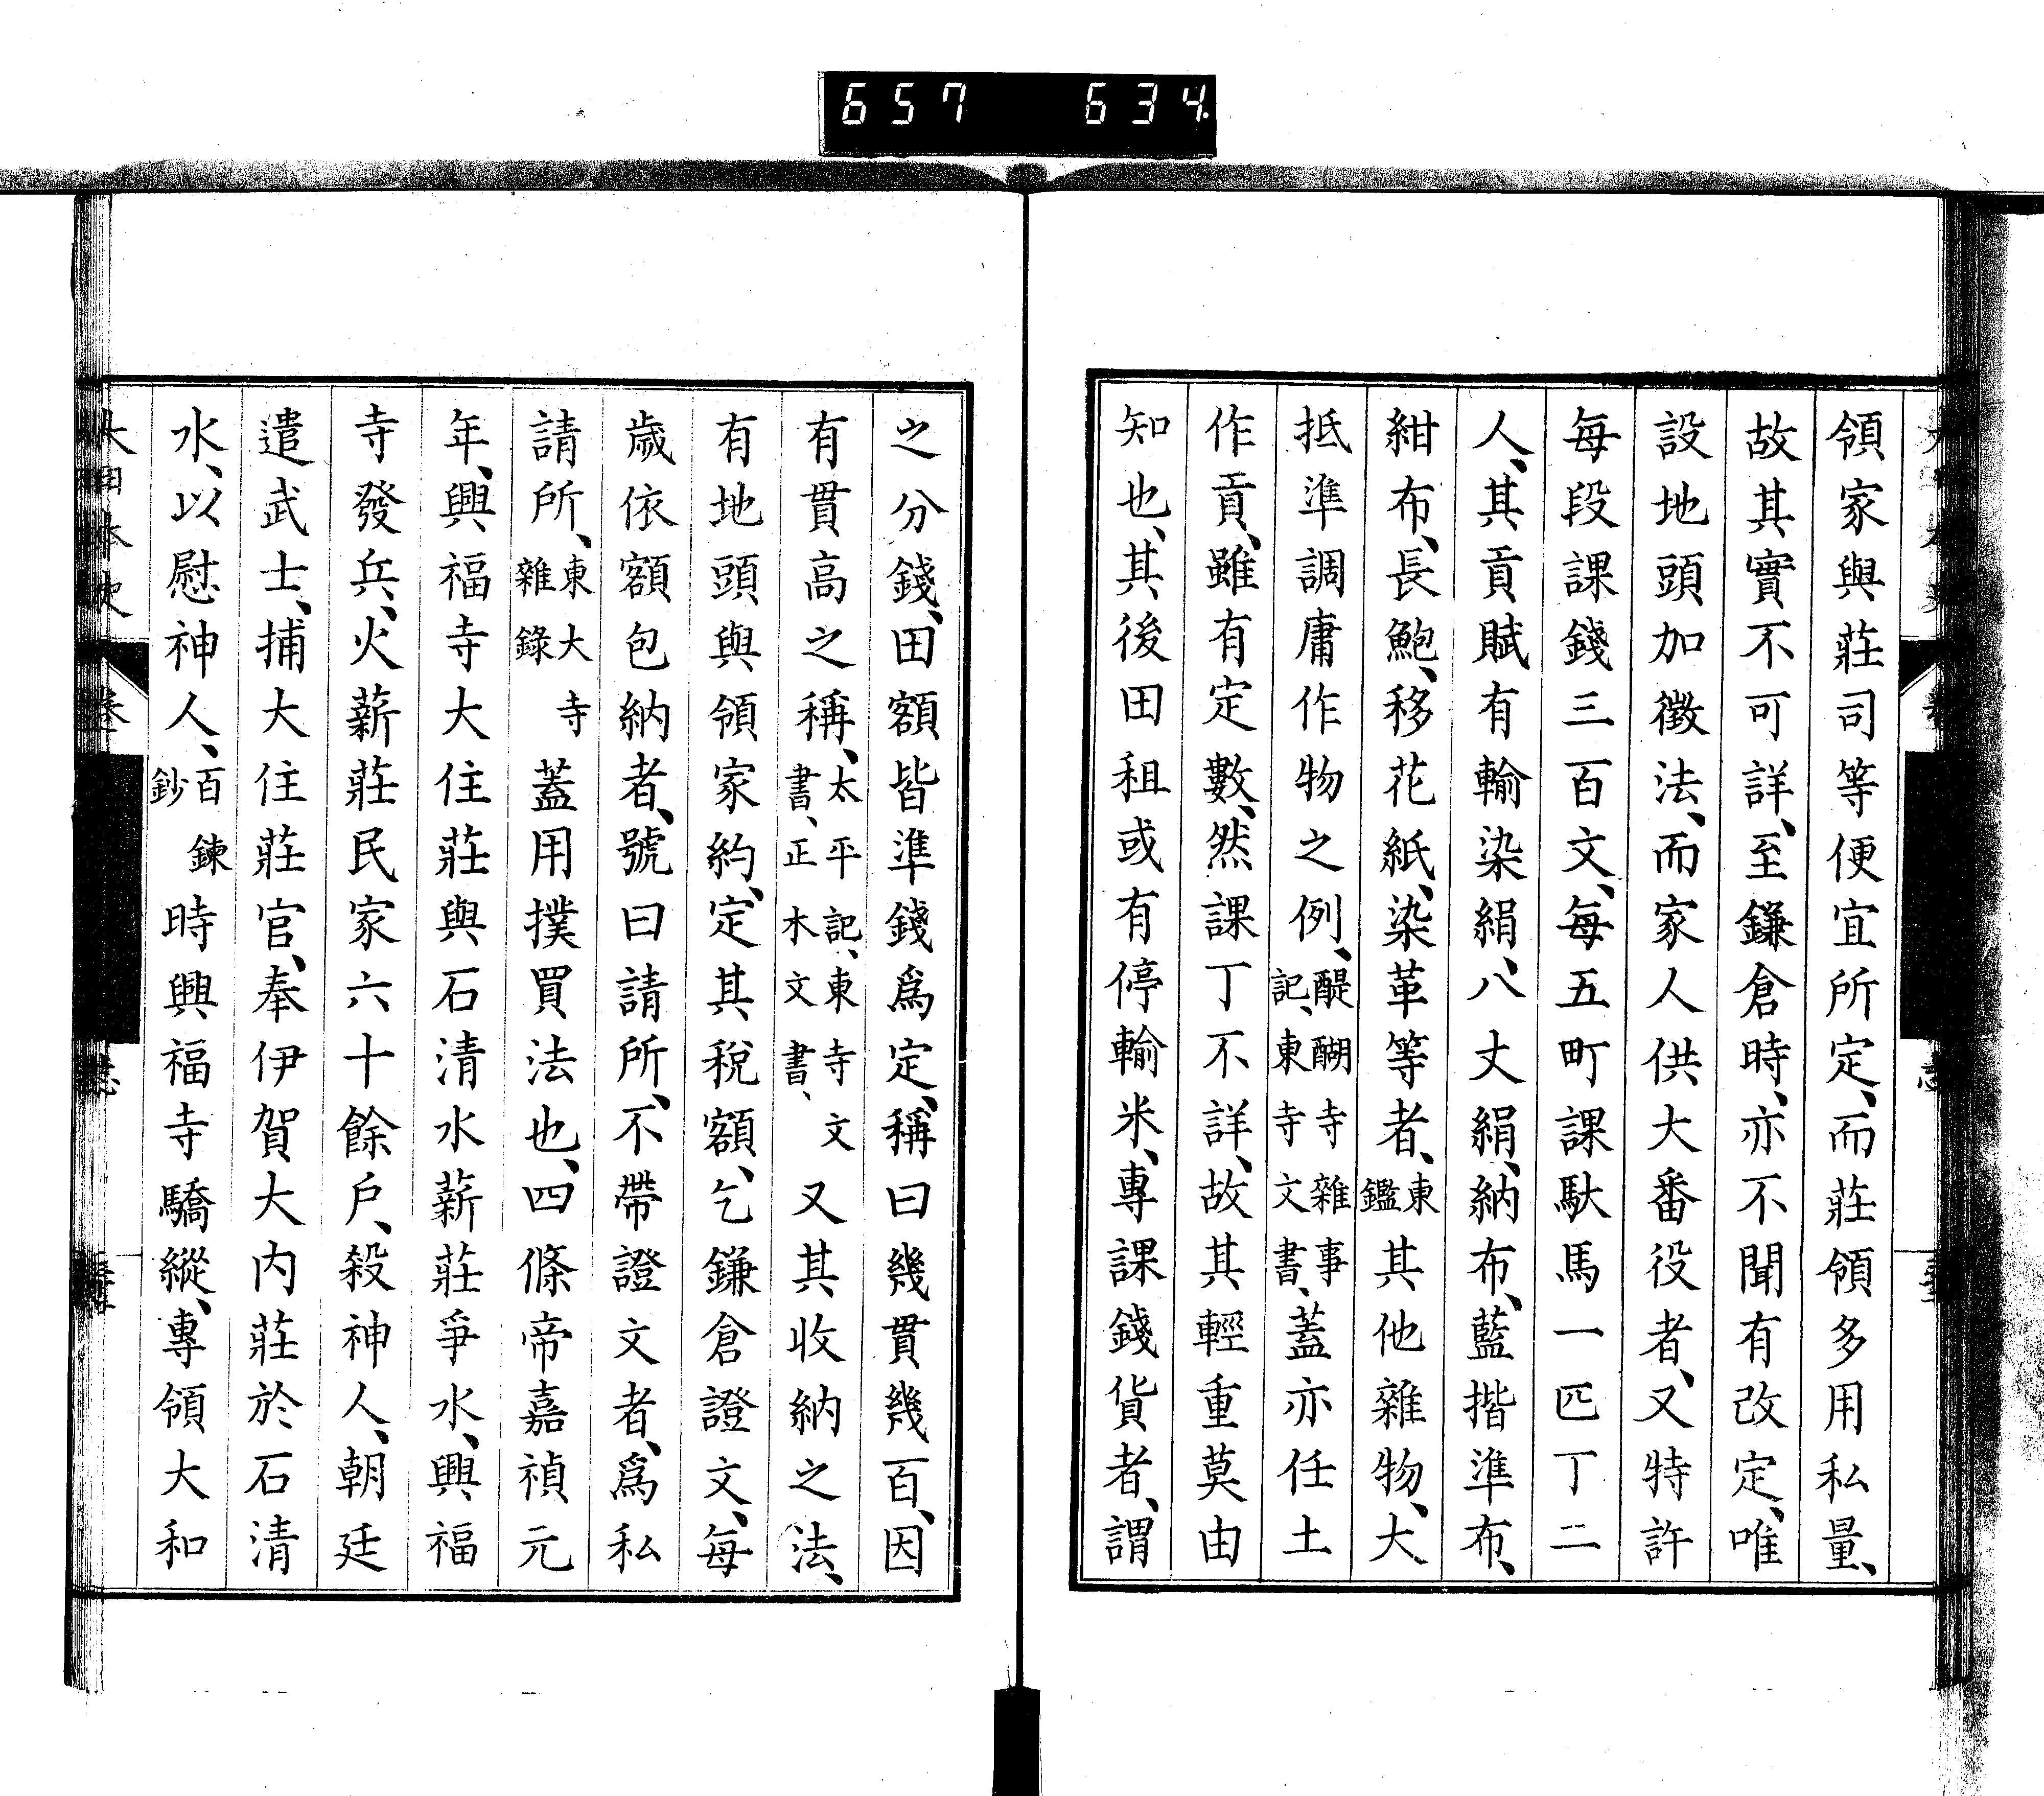 657 634
領家與莊司等便宜所定、而莊領多用私量、
故其實不可詳、至鎌倉時、亦不聞有改定、唯
設地頭加徵法、而家人供大番役者、又特許
每段課錢三百文、每五町課馱馬一匹丁二
人、其貢賦有輸染絹、八丈絹、納布、藍揩準布、
紺布、長鮑、移花紙、染革等者、東鑑其他雜物、大
抵準調庸作物之例、醍醐寺雜事記、東寺文書、蓋亦任土
作貢、雖有定數、然課丁不詳、故其輕重莫由
知也、其後田租或有停輸米、專課錢貨者、謂
之分錢、田額皆準錢爲定、稱曰幾貫幾百、因
有貫高之稱、太平記、東寺文書、正木文書、又其收納之法、
有地頭與領家約、定其稅額、乞鎌倉證文、每
歲依額包納者、號曰請所、不帶證文者、爲私
請所、東大寺雜錄蓋用撲買法也、四條帝嘉禎元
年、興福寺大住莊與石清水薪莊爭水、興福
寺發兵、火薪莊民家六十餘戶、殺神人、朝廷
遣武士、捕大住莊官、奉伊賀大內莊於石清
水、以慰神人、百鍊鈔時興福寺驕縱、專領大和
大日本史 卷 志